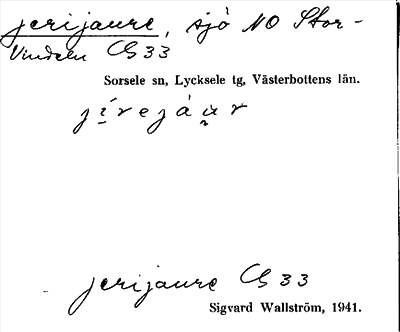 Jerijaure, sjö NO Stor-
Vindeln GS 33
Sorsele sn, Lycksele tg, Västerbottens län.
jírejàur
Jerijaure GS 33
Sigvard Wallström, 1941.